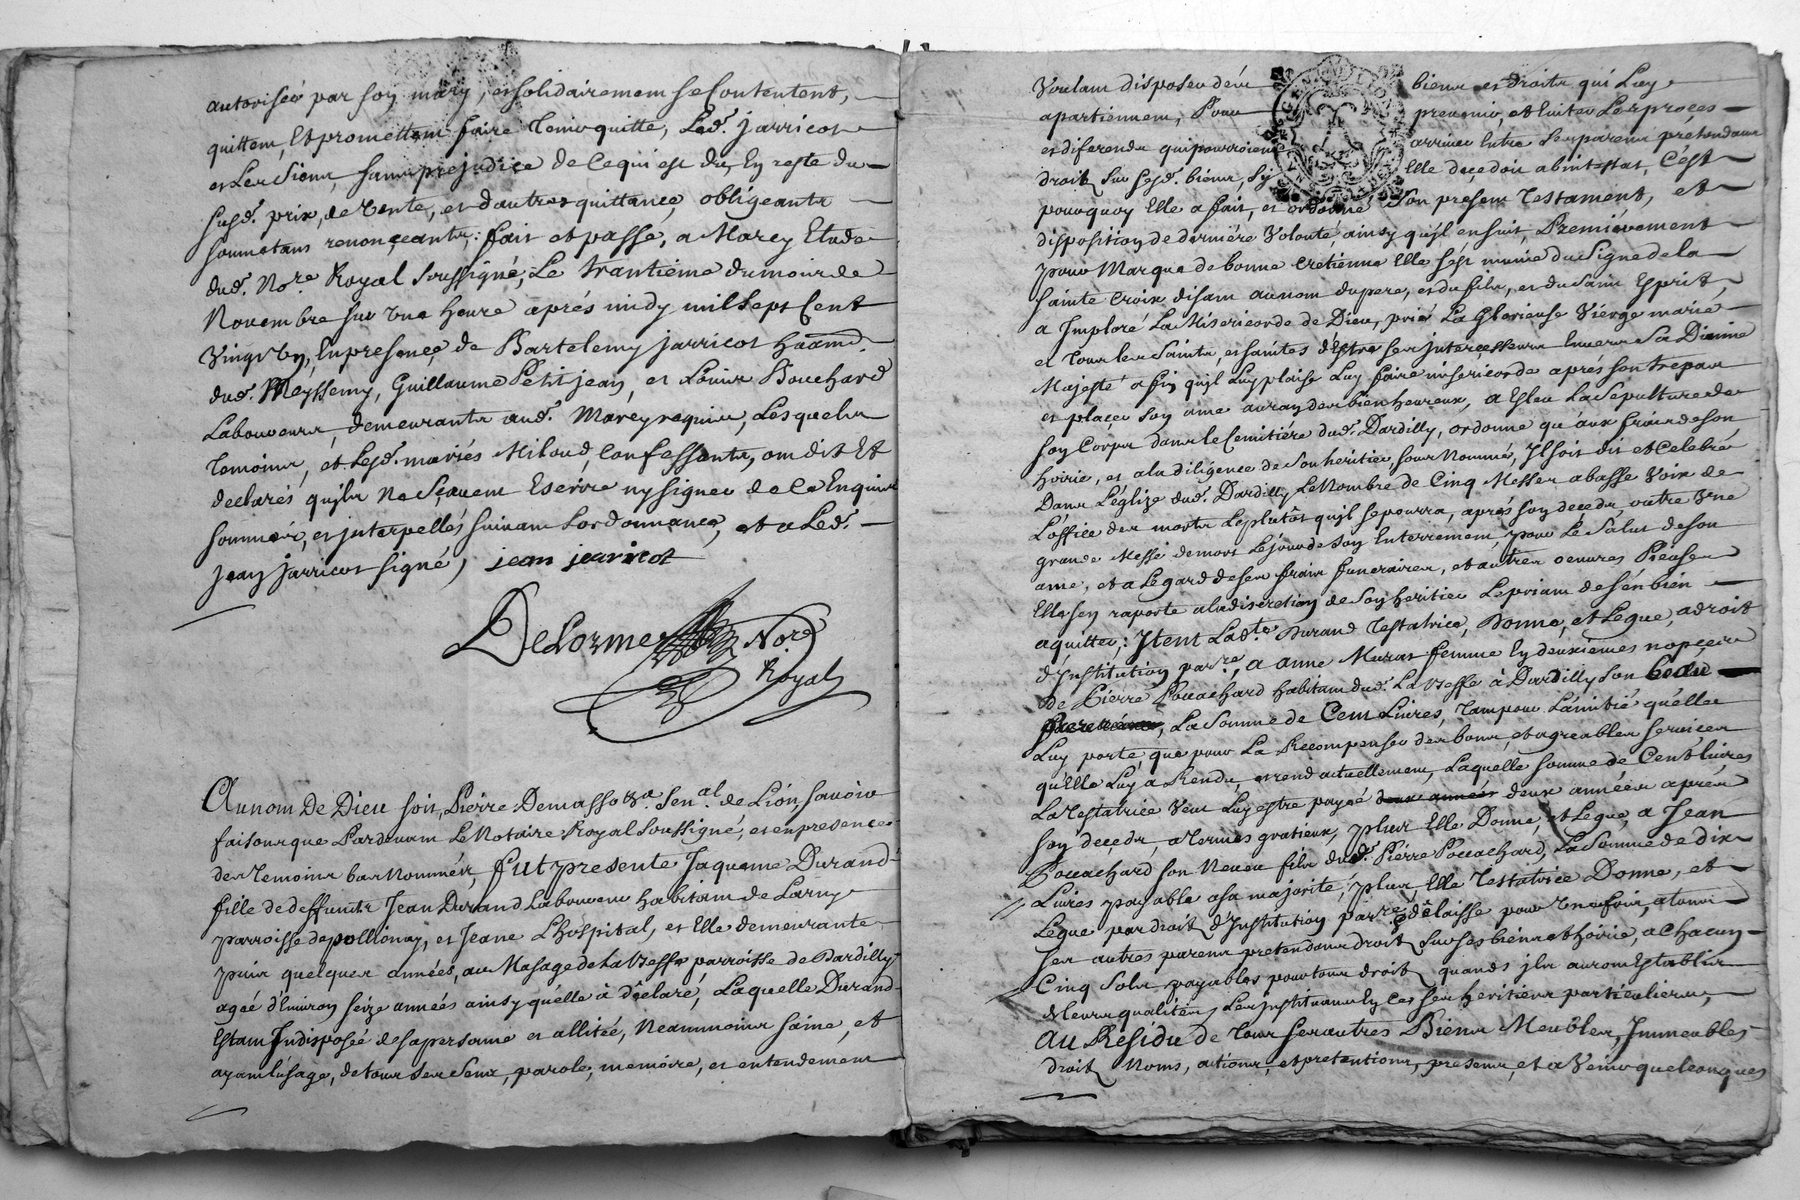 autorisée par son mary, et solidairement se Contentent,
quittent, Et promettent faire Tenir quitte, Led. Jarricot
et Les Siens, sans prejudice de Ce qui est du, En reste du
susd. prix, de vente, et d'autres quittance, obligeants
soumetans renonçeants: fait et passé, a Marcy Etude
dud. No.re Royal soussigné, Le trantiéme du mois de
Novembre sur une heure aprés midy mil sept Cent
Vingt Un, En presençe de Bartelemy jarricot
dud. Meyssemy, Guillaume Petit jean, et Louis Bouchard
Laboureurs, demeurants aud. Marcy requis, Lesquels
Temoins, et Lesd. mariés Miloud, Confessants, ont dit Et
declarés qu'ils Ne Sçavent Escrire ny signer de Ce Enquis
sommés, et jnterpellés suivant Lordonnançe, et a Led.
jean jarricot signé,
jean jarricot
Delorme No.re
Royal
Au nom De Dieu soit, Pierre Demasso Sen.al de Lion savoir
faisons que Pardevant Le Notaire Royal Soussigné, et en presence
des Temoins bas Nommés, fut presente Jaqueme Durand
fille de deffunts Jean Durand Laboureur habitant de Larny
parroisse de pollionay, et Jeane Lhospital, et Elle demeurante
puis quelques années, au Masage de La Beffe parroisse de Dardilly
agée d'Environ seize années ainsy qu'elle à déclaré, Laquelle Durand
Estant Jndisposée de sa personne et allitée, Neammoins saine, et
ayant l'usage, de tous ses Sens, parole, memoire, et entendement
Voulant disposer des biens et droits qui Luy
apartiennent, Pour prevenir, et Eviter Les proces
et diferends qui pourroient arriver Entre Ses parens prétendans
droits sur sesd. biens, sy Elle decedoit abintestat, C'est
pourquoy Elle a fait, et ordonné Son present Testament, et
disposition de derniére Volonté, ainsy qu'jl ensuit, Premiérement
pour Marque de bonne Cretienne Elle s'est munie du Signe de la
Sainte Croix, disant au nom du pere, et du fils, et du Saint Esprit,
a Jmploré La Misericorde de Dieu, prié La Glorieuse Viérge marie
et Tous les Saints, et saintes d'Estre ses jnterçesseurs Envers Sa Divine
Majesté afin qu'jl Luy plaise Luy faire misericorde aprés son trepas
et placer son ame au rang des bien heureux, a Esleu La Sepulture de
son Corps dans le Cemitiére dud. Dardilly, ordonne qu'aux frais de son
hoirie, et a la diligence de son heritier, sous Nommé, Jl soit dit et Celebré
Dans L'églize dud. Dardilly Le Nombre de Cinq Messes a basse Voix de
L'office des morts Le plutôt qu'jl se pourra, aprés son decedz, outre Une
grande Messe de mort Le jour de son Enterrement, pour Le Salut de son
ame, et a L'egard de ses frais funeraires, et autres oeuvres Piéuses
Elle s'en raporte a la discretion de son heritier Le priant de s'en bien
aquitter: Jtem Lad.te Durand Testatrice, Donne, et Legue, a droit
d'Institution par.re, a anne Murat femme En deuxiémes nopces
de Pierre Pouachard habitant dud. La Beffe à Dardilly son beau
La Somme de Cent Livres, Tant pour L'amitié qu'elle
Luy porte, que pour La Recompenser des bons, et agreables services
qu'Elle Luy a Rendu, et rend actuellement, Laquelle somme de Cent Livres
La Testatrice Veut Luy estre payée deux années deux années aprés
son decedz, a termes gratieux, plus Elle Donne, et Legue, a Jean
Pouachard son Neveu fils dud. Pierre Pouachard, La Somme de dix
Livres payable a sa majorité, plus Elle Testatrice Donne, et
Legue par droit d'Institution par.re, & delaisse pour Une fois, a tous
ses autres parens pretendans droits sur ses biens et hoirie, a Chacun
Cinq Sols payables pour tous droits quands jls auront Establis
& Leurs qualités, Les jnstituants En Ces ses heritiers particuliers,
Au Residu de Tous ses autres Biens Meubles, Jmmeubles
droits Noms, actions, et pretentions, presens, et a Venir quelconques